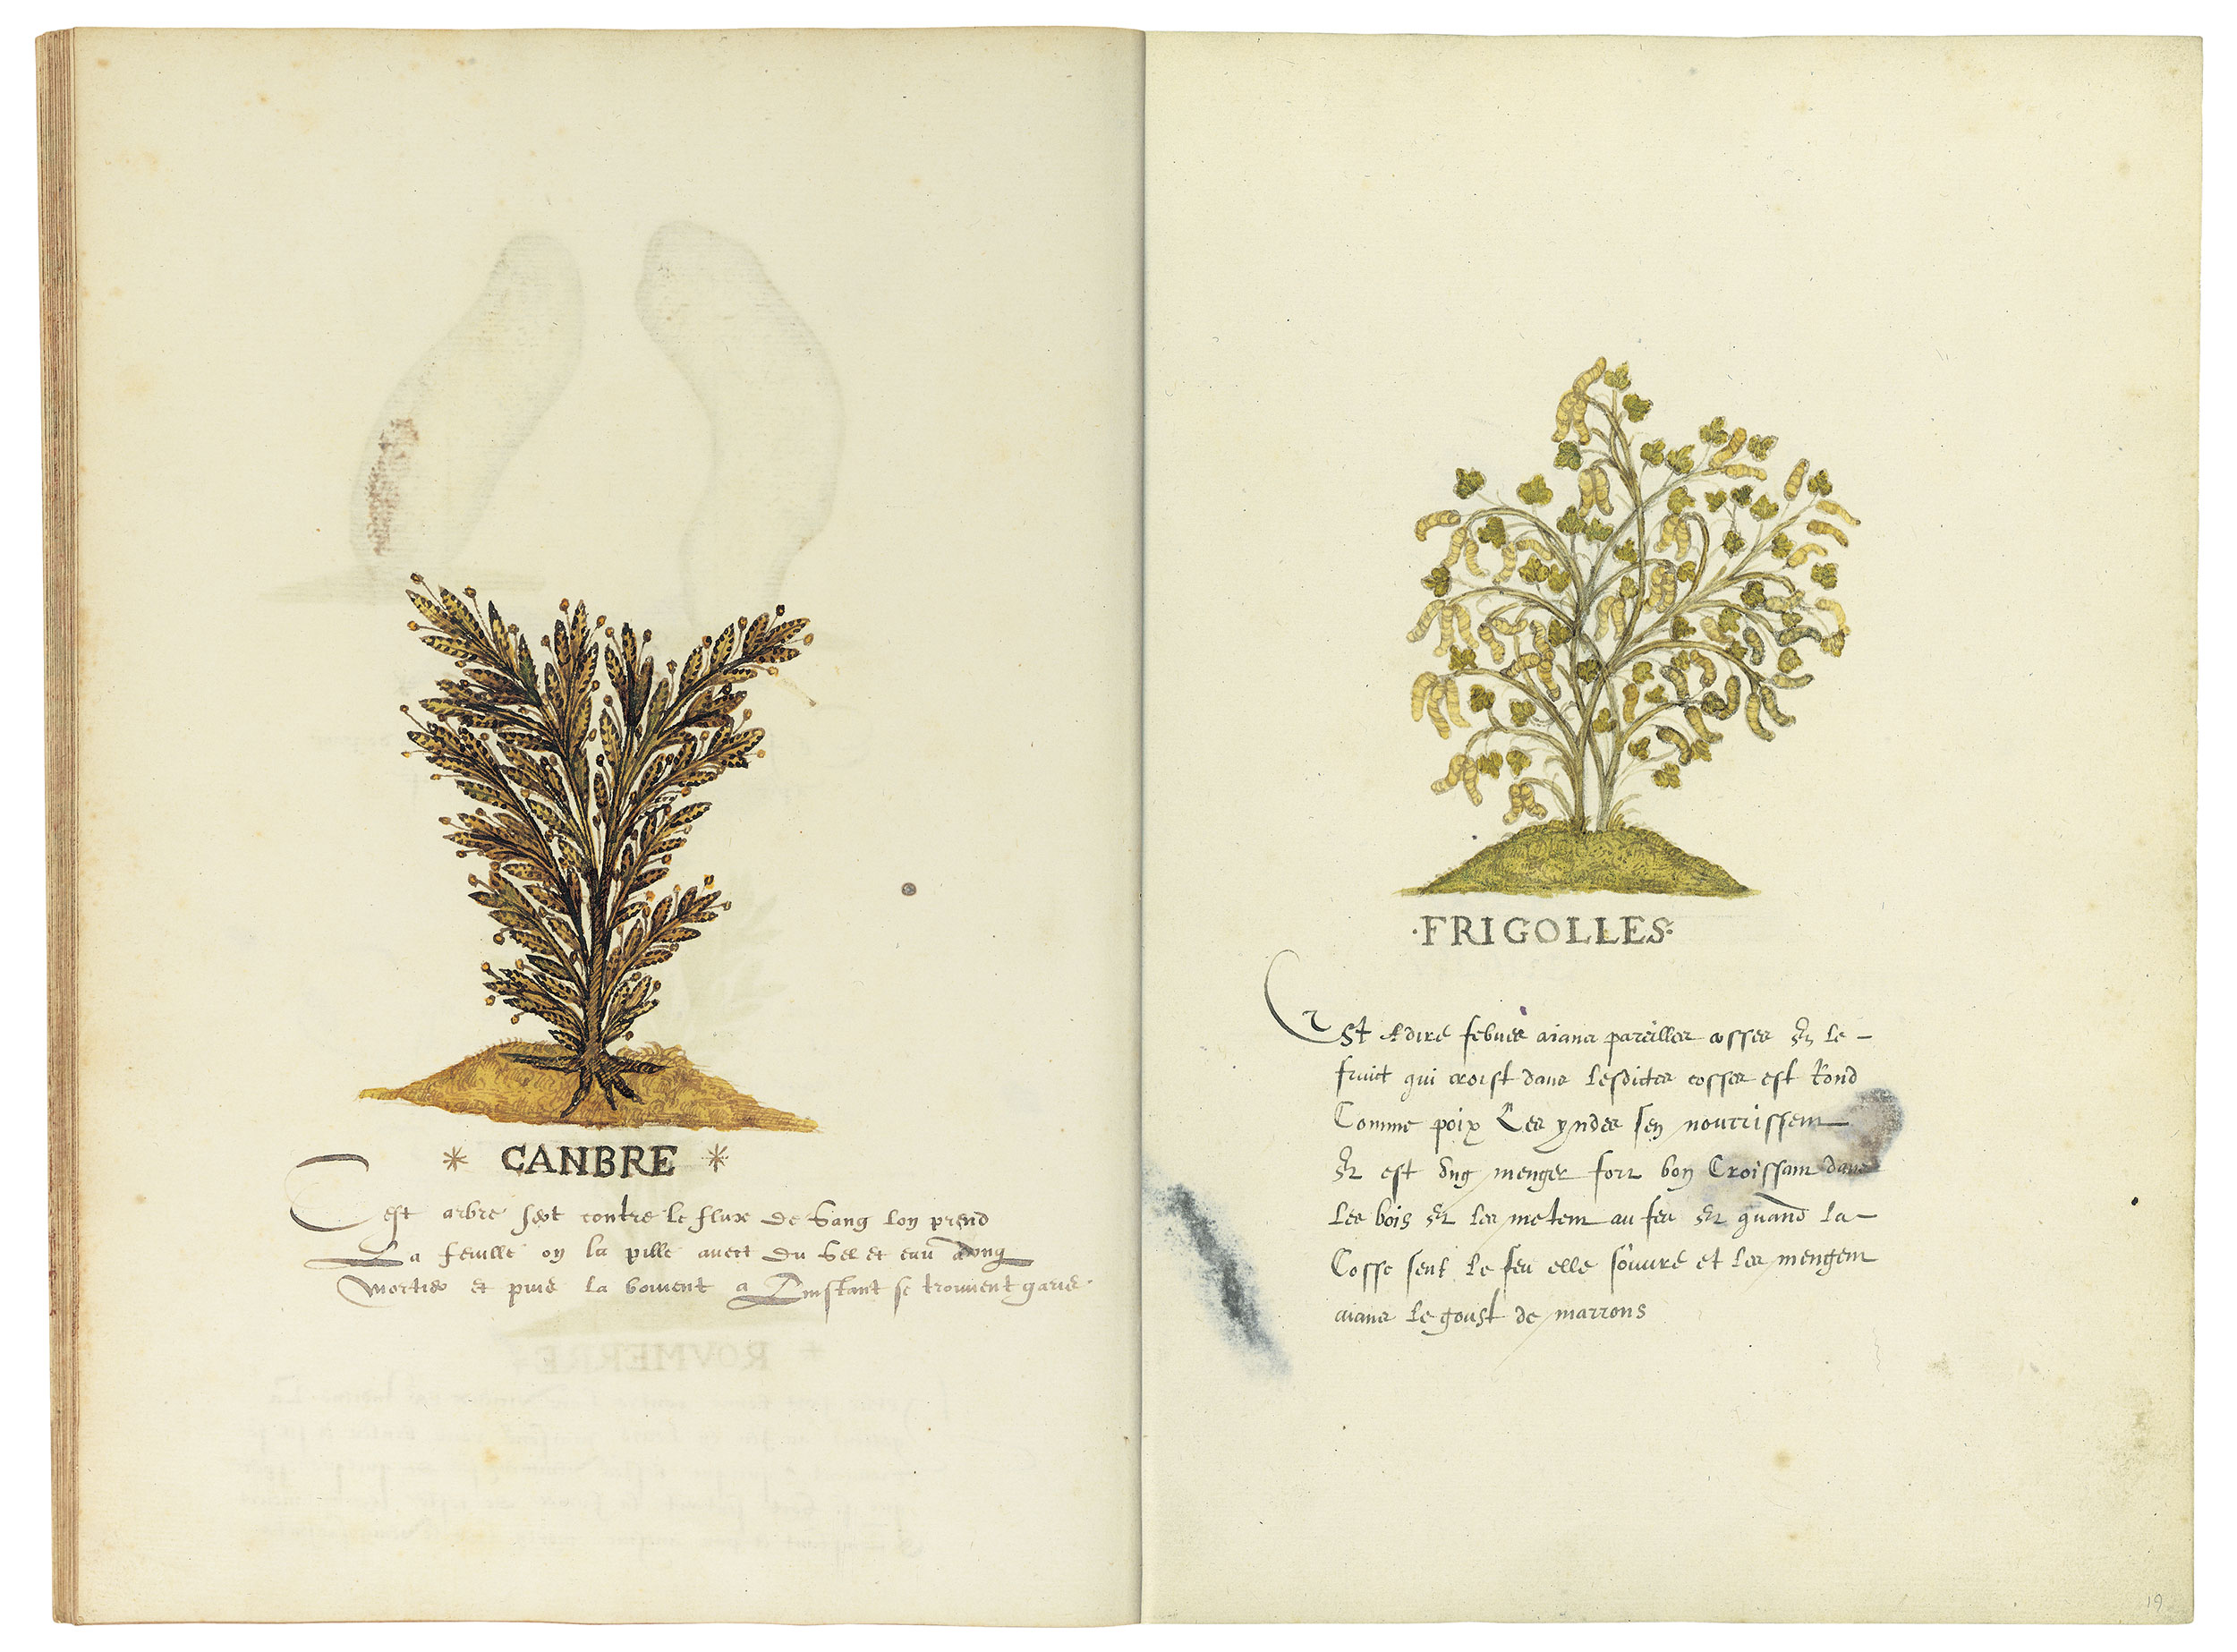 * CANBRE *
Cest arbre sert contre le flux de sang lon prend
La feuille on la pille avect du sel et eau dong
mortier et puis la boivent a Linstant se trouvent garis
·FRIGOLLES·
Est Adire febues aians pareilles cosses Et le -
fruict qui croist dans lesdictes cosses est Rond
Comme poix Les yndes sen nourrissent
Et est dng menger fort bon Croissant dans
Les bois Et les metent au feu Et quand la -
Cosse sent le feu elle souure et les mengent
aians le goust de marrons
19
* ROVMERRE *